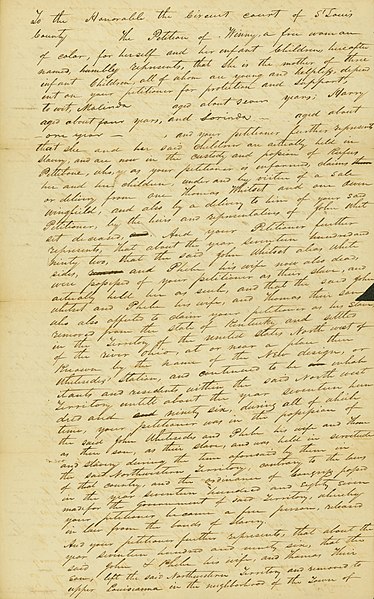 To the Honorable the Circuit court of St Louis
County The Petition of Winny, a free woman
of color, for herself and her infant Children, hereafter
named, humbly represents, that She is the mother of three
infant Children, all of whom are young and helpless, depend
ant on your petitioner for protection and Support,
to wit, Malinda aged about seven years, Harry
aged about four years, and Lorinda aged about
one year — , and your petitioner further represents
that she and her said children are actually held in
Slavery, and are now in the custody and possession of
Petitioner, who, as your petitioner is informed, claims
her and her children, under and by virtue of a sale
or delivery from one Thomas Whitset and one Owen
Wingfield, and also by a delivery to him of your said
Petitioner, by the heirs and representatives of John Whit
set deceased, And your Petitioner further
represents, that about the year seventeen hundred and
ninety two, that the said John Whitset alias White
sides, and Phebe his wife now also dead,
were possessed of your petitioner as their slave, and
actually held her as such, and that the said John
Whitset and Phebe his wife, and Thomas their Son
who also affected to claim your petitioner as Slave
removed from the State of Kentucky and settled
in the Territory of the united States, North west of
of the river Ohio, at or near a place then
Known by the name of the New design, or
Whitesides' Station, and continued to be inhabi
tants and residents within the said North west
Territory, until about the year seventeen hun
dred and ninety six, during all of which
time, your petitioner was in the possession of
the said John Whitesides and Phebe his wife and Thomas
as their son, as their slave, and was held in servitude
and slavery during the time aforesaid by them in
the said Northwestern Territory, contrary to the laws
of that country, and the ordinance of Congress passed
in the year seventeen hundred and Eighty Seven
made for the Government of said Territory, whereby
your petitioner became a free person, released
in law from the bonds of Slavery.
And your petitioner further represents, that about the
year seventeen hundred and ninety six, that the
said John & Phebe his wife, and Thomas their
Son, left the said Northwestern Territory and removed to
upper Louisianna in the neighborhood of the Town of